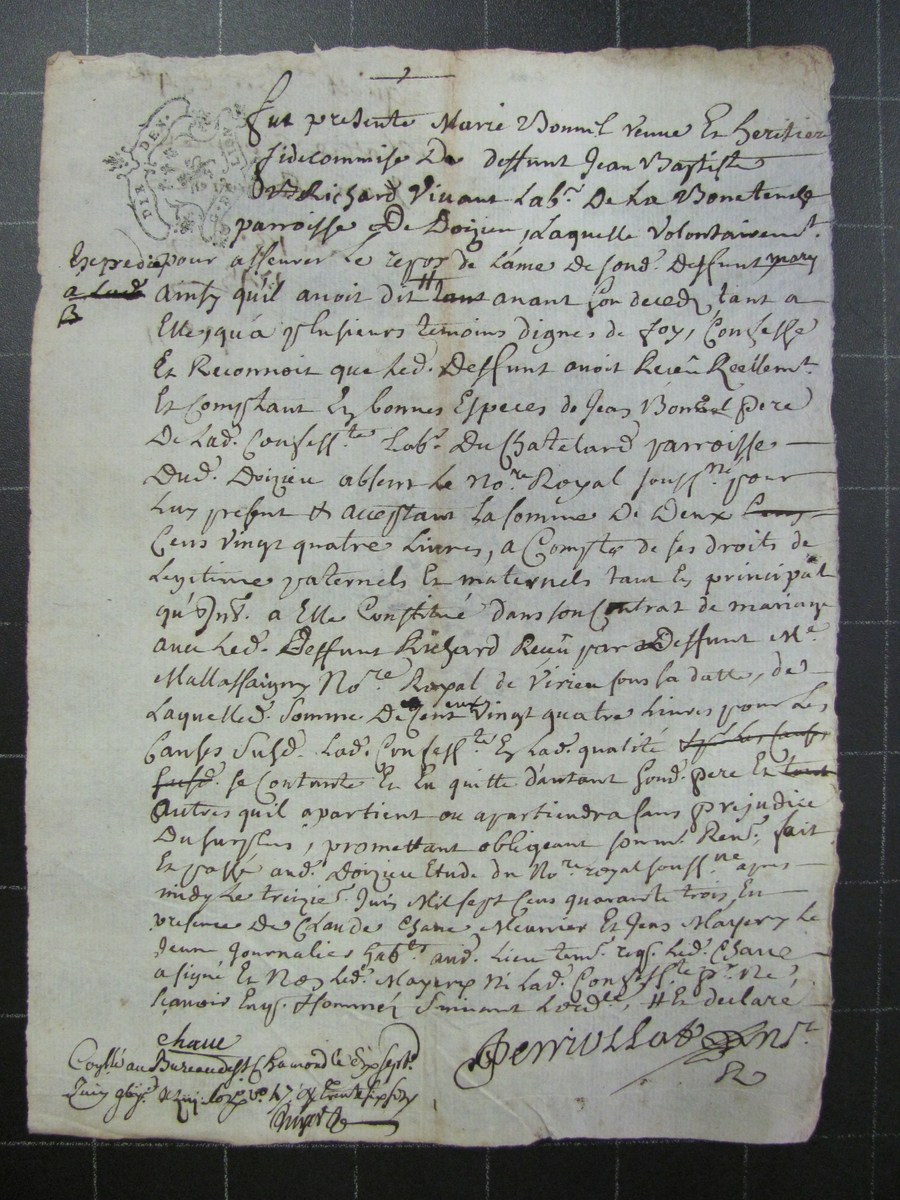 Fut presente Marie Bonnel veuve Et heritiere
fideicommise De deffunt Jean Baptiste
Richard Vivant Lab.r De La Bonetendy
parroisse De Doizieu, Laquelle Volontairem.t
Expedie pour asseurer Le repos de Lame de sond. Deffunt mary
a Lad.
B
ainsy qu'il avoit dit avant son deced, tant a
Elle, qu'a plusieurs temoins dignes de foy, Confesse
Et Reconnoit que Led. Deffunt avoit Receu Reellem.t
Et Comptant En bonnes Especes de Jean Bonnel pere
De Lad. Confess.te Lab.r Du Chatelard parroisse
Dud. Doizieu absent Le No.re Royal souss.né pour
Luy present et acceptant La somme De Deux
Cens vingt quatre Livres, a Compte de ses droits de
Legitime paternels Et maternels tant En principal
qu'Int. a Elle Constitué dans son Contrat de mariage
avec Led. Deffunt Richard Receu par Deffunt M.e
Mallassaigny No.re Royal de Virieu sous sa datte, de
Laquelled. Somme De Deux Cens Vingt quatre Livres pour Les
Causes Susd. Lad. Confess.te En Lad. qualité
se Contante Et En quitte d'autant sond. pere Et
Autres qu'il apartient ou apartiendra sans prejudice
Du surplus, promettant obligeant soum. Ren. fait
Et passé aud. Doizieu Etude du No.re royal souss.né apres
midy Le treizie. Juin Mil sept Cens quarante trois, En
presence De Claude Chave Meunier Et Jean Mayery Le
Jeune Journalier hab.ts aud. Lieu tem. req. Led. Chave
a signé Et Non Led. Mayery Ni Lad. Confess.te p.r Ne
Scavoir Enq. et sommés suivant Lord.ce Et declaré
chave
Perriollat No.r
Conllé au Bureau de St Chamond Le dix sept.
Juin